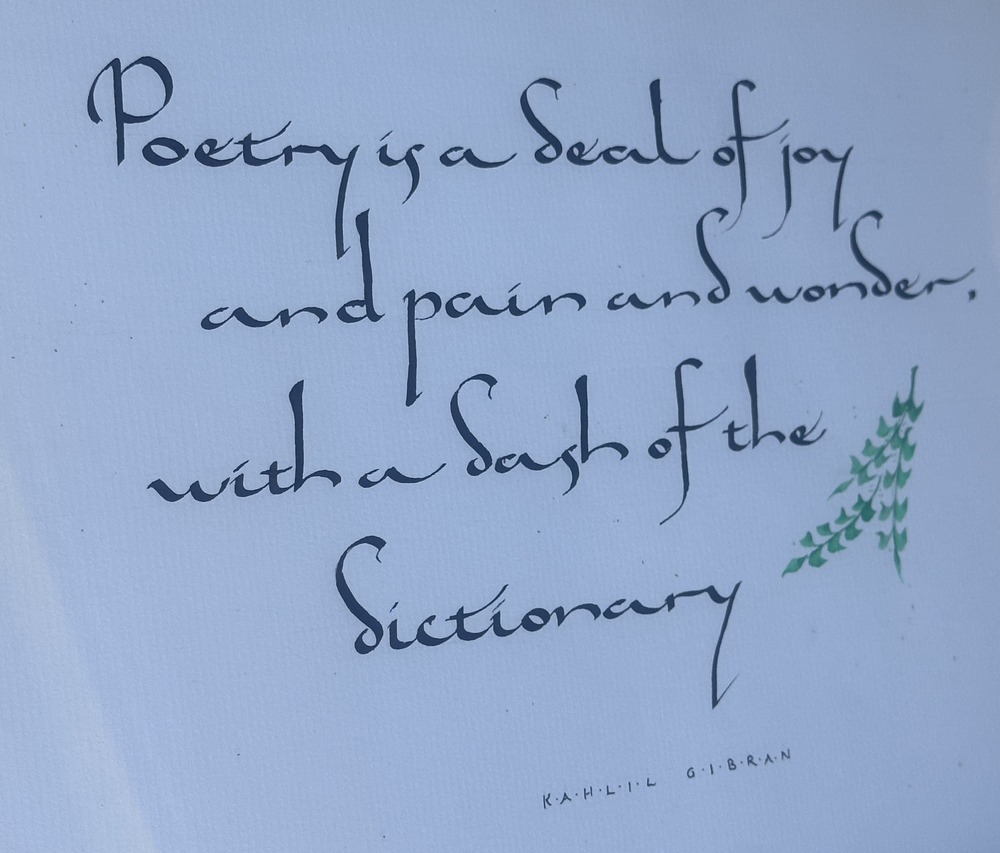 Poetry is a deal of joy
and pain and wonder,
with a dash of the
dictionary
K·A·H·L·I·L G·I·B·R·A·N